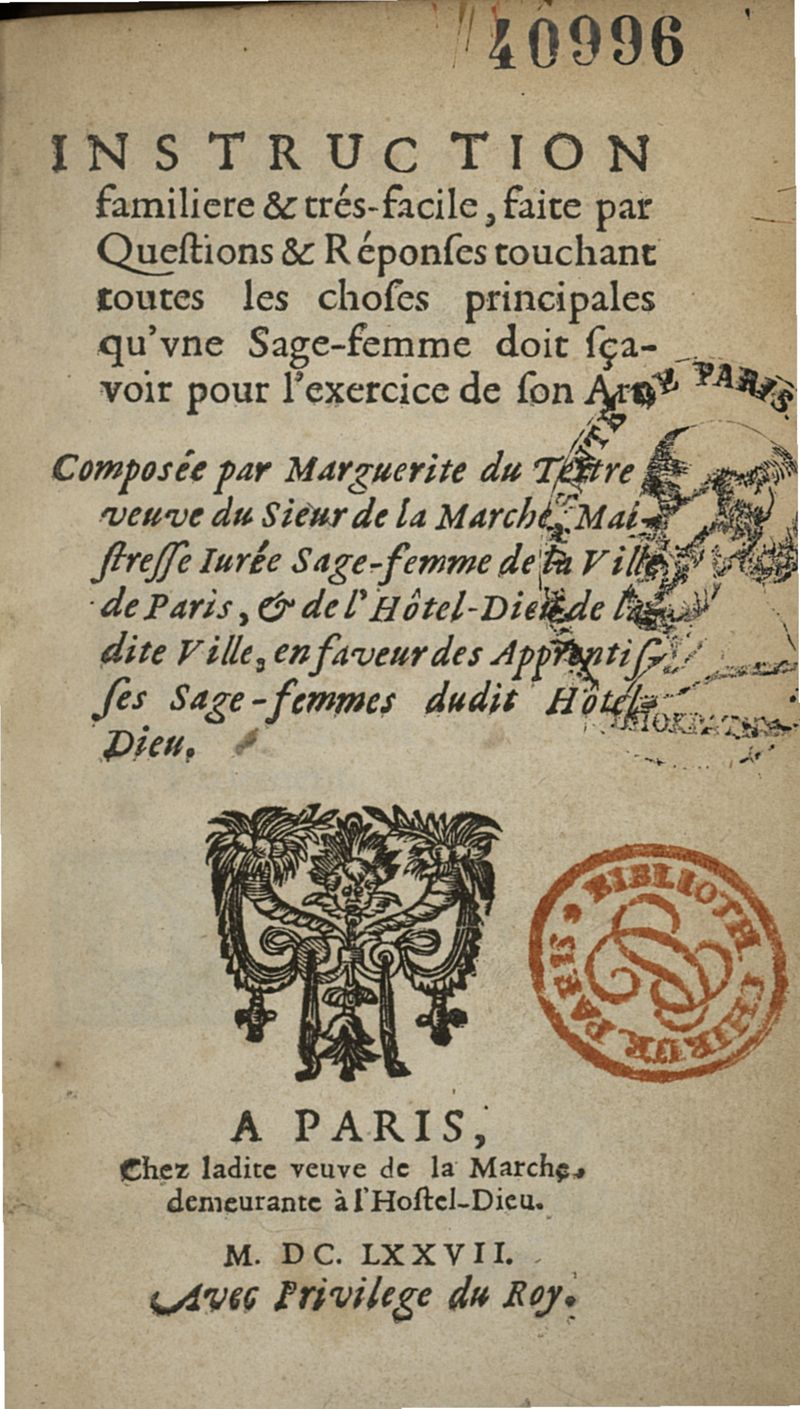 40996
INSTRUCTION
familiere & trés-facile, faite par
Queſtions & Réponſes touchant
toutes les choſes principales
qu'vne Sage-femme doit ſça-
voir pour l'exercice de ſon Art
PARIS.
Composée par Marguerite du Tertre
veuve du Sieur de la Marche, Mai-
ſtreſſe Iurée Sage-femme de la Ville
de Paris, & de l'Hôtel-Dieu de la-
dite Ville, en faveur des Apprentiſ-
ſes Sage-femmes dudit Hôtel-
Dieu.
BIBLIOTH. CHIRUR. PARIS
A PARIS,
Chez ladite veuve de la Marche,
demeurante à l'Hoſtel-Dieu.
M. DC. LXXVII.
Avec Privilege du Roy.